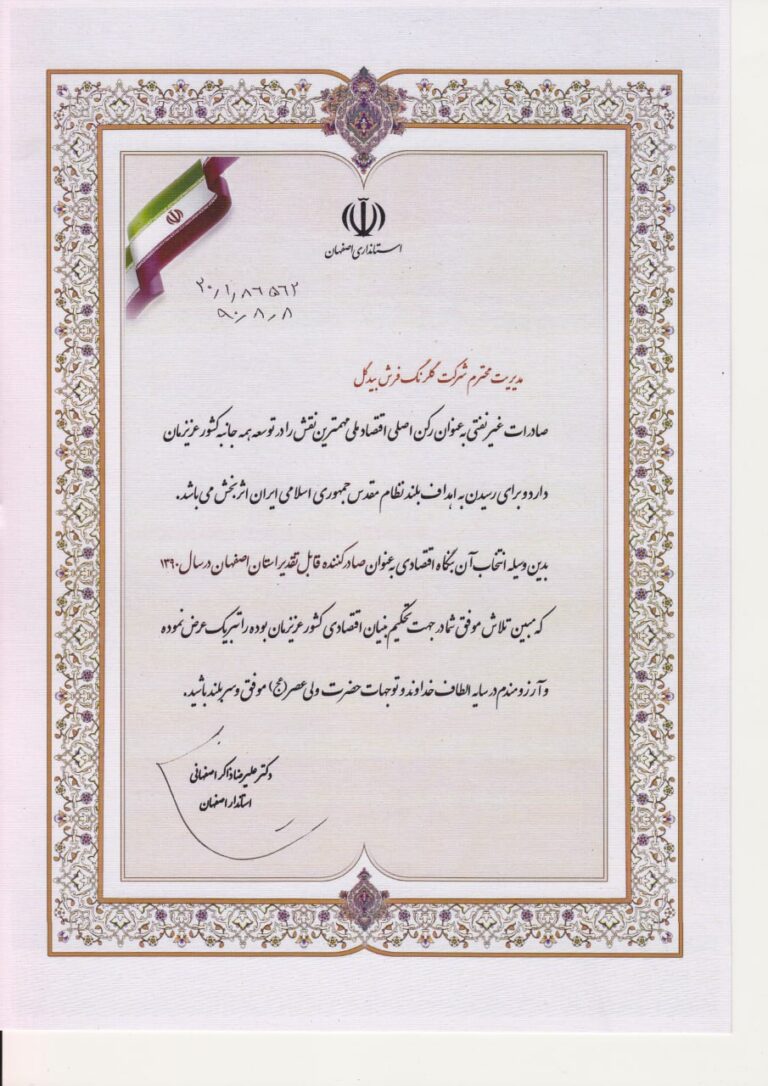 استانداری اصفهان
۲۰/۱/۸۶۵۶۲
۹۰/۸/۸
مدیریت محترم شرکت گلرنگ فرش بیدگل
صادرات غیرنفتی به عنوان رکن اصلی اقتصاد ملی مهمترین نقش را در توسعه همه جانبه کشور عزیزمان
دارد و برای رسیدن به اهداف بلند نظام مقدس جمهوری اسلامی ایران اثربخش می باشد.
بدین وسیله انتخاب آن بنگاه اقتصادی به عنوان صادرکننده قابل تقدیر استان اصفهان در سال ۱۳۹۰
که مبین تلاش موفق شما در جهت تحکیم بنیان اقتصادی کشور عزیزمان بوده را تبریک عرض نموده
و آرزومندم در سایه الطاف خداوند و توجهات حضرت ولی عصر (عج) موفق و سربلند باشید.
دکتر علیرضا ذاکر اصفهانی
استاندار اصفهان